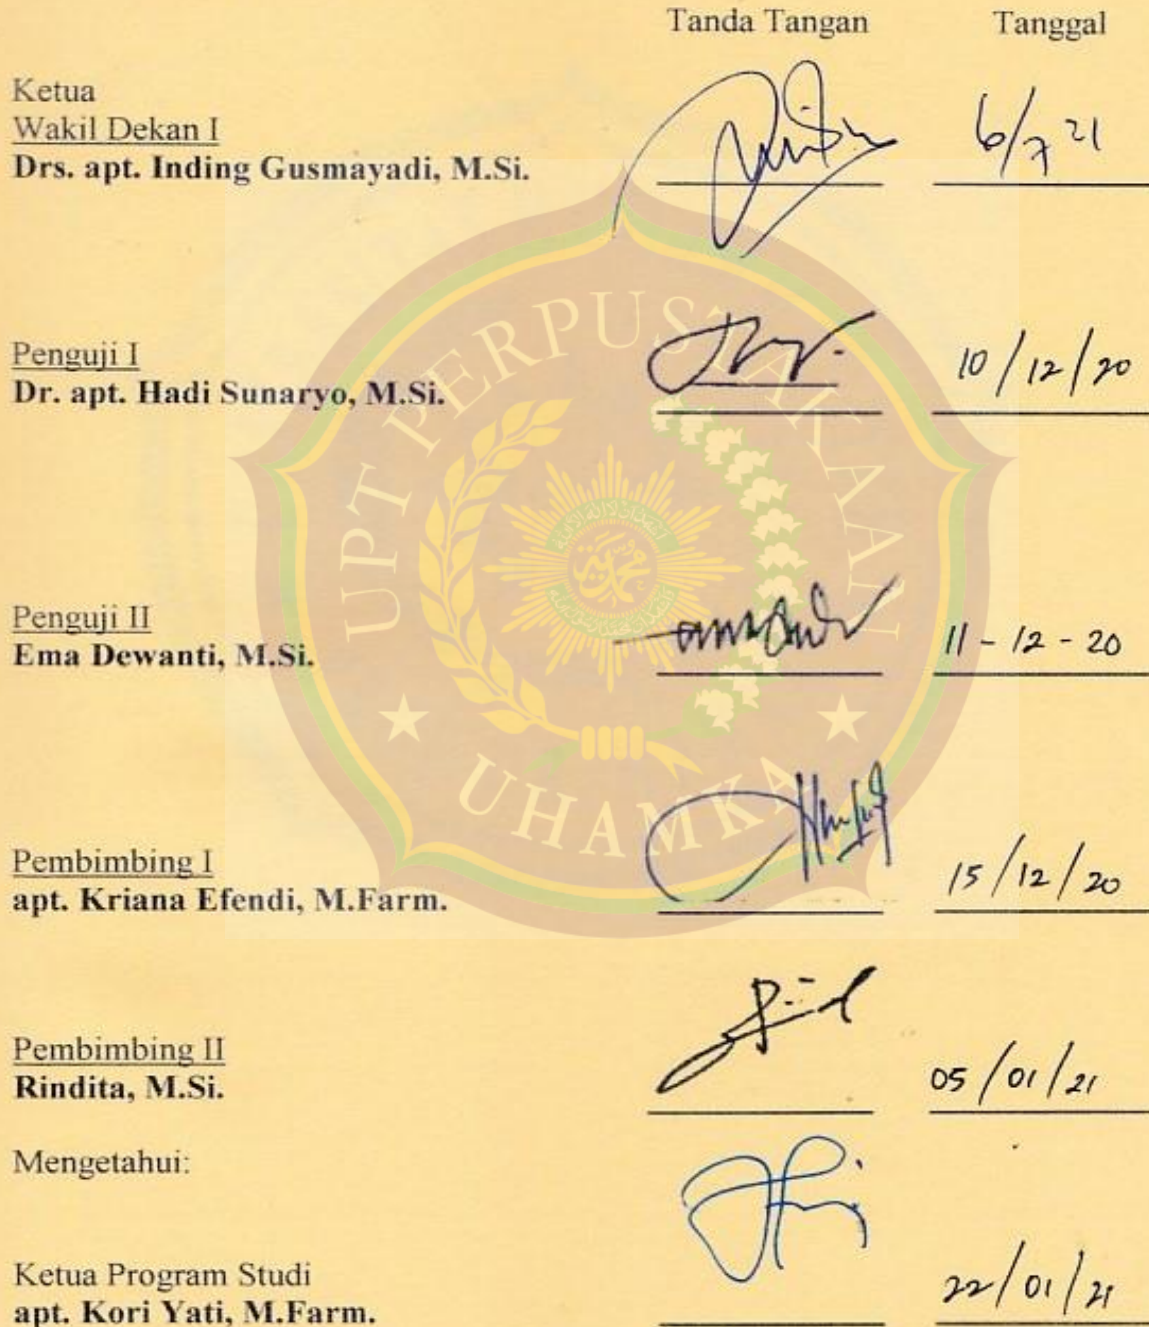 Tanda Tangan Tanggal
Ketua
Wakil Dekan I
Drs. apt. Inding Gusmayadi, M.Si. 6/7 21
Penguji I
Dr. apt. Hadi Sunaryo, M.Si. 10/12/20
Penguji II
Ema Dewanti, M.Si. 11-12-20
Pembimbing I
apt. Kriana Efendi, M.Farm. 15/12/20
Pembimbing II
Rindita, M.Si. 05/01/21
Mengetahui:
Ketua Program Studi
apt. Kori Yati, M.Farm. 22/01/21
UPT PERPUSTAKAAN
UHAMKA